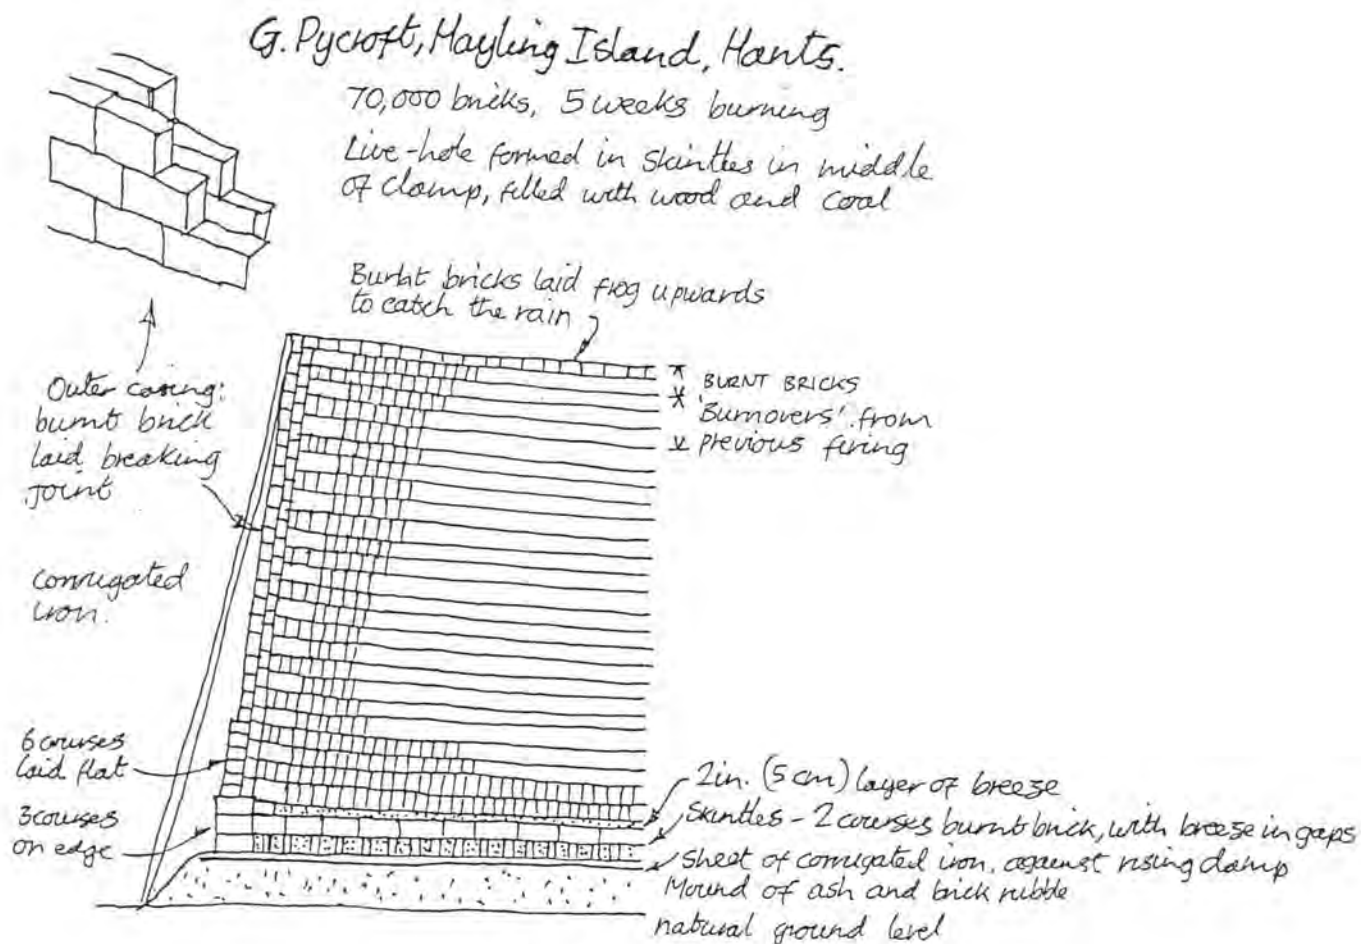 G. Pycroft, Hayling Island, Hants.
70,000 bricks, 5 weeks burning
Live-hole formed in skintles in middle
of clamp, filled with wood and coal
Burnt bricks laid frog upwards
to catch the rain
BURNT BRICKS
'Burnovers' from
previous firing
Outer casing:
burnt brick
laid breaking
joint
corrugated
iron.
6 courses
laid flat
3 courses
on edge
2in. (5 cm) layer of breeze
Skintles - 2 courses burnt brick, with breeze in gaps
sheet of corrugated iron, against rising damp
Mound of ash and brick rubble
natural ground level